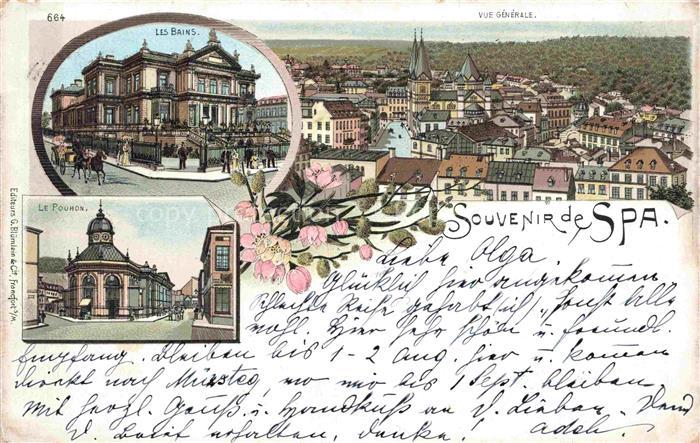 664
LES BAINS.
VUE GÉNÉRALE.
LE POUHON.
Editeurs G. Blümlein & Cie, Francfort s/M.
SOUVENIR de SPA.
Liebe Olga
Glücklich hier angekommen
schlechte Reise gehabt (ich), sonst alle
wohl. Hier sehr schön u. freundl.
Empfang. Bleiben bis 1-2 Aug. hier u. kommen
direkt nach Mürzsteg wo wir bis 1 Sept. bleiben
Mit herzl. Gruß u. Handkuß an d. Lieben
erhalten, danke!